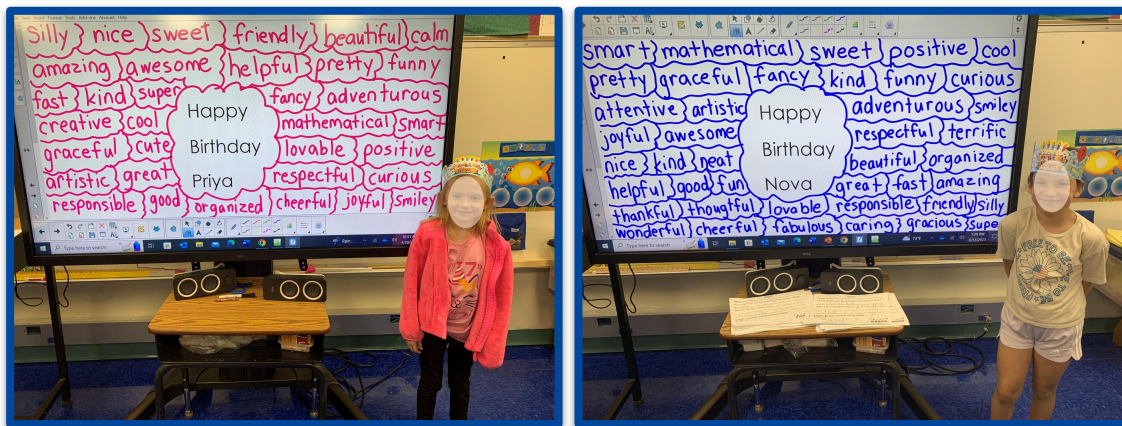 Silly nice sweet friendly beautiful calm
amazing awesome helpful pretty funny
fast kind super fancy adventurous
creative cool mathematical smart
graceful cute lovable positive
artistic great respectful curious
responsible good organized cheerful joyful smiley
Happy
Birthday
Priya
Type here to search
Rain...
smart mathematical sweet positive cool
pretty graceful fancy kind funny curious
attentive artistic adventurous smiley
joyful awesome respectful terrific
nice kind neat beautiful organized
helpful good fun great fast amazing
thankful thougtful lovable responsible friendly silly
wonderful cheerful fabulous caring gracious supe
Happy
Birthday
Nova
Type here to search